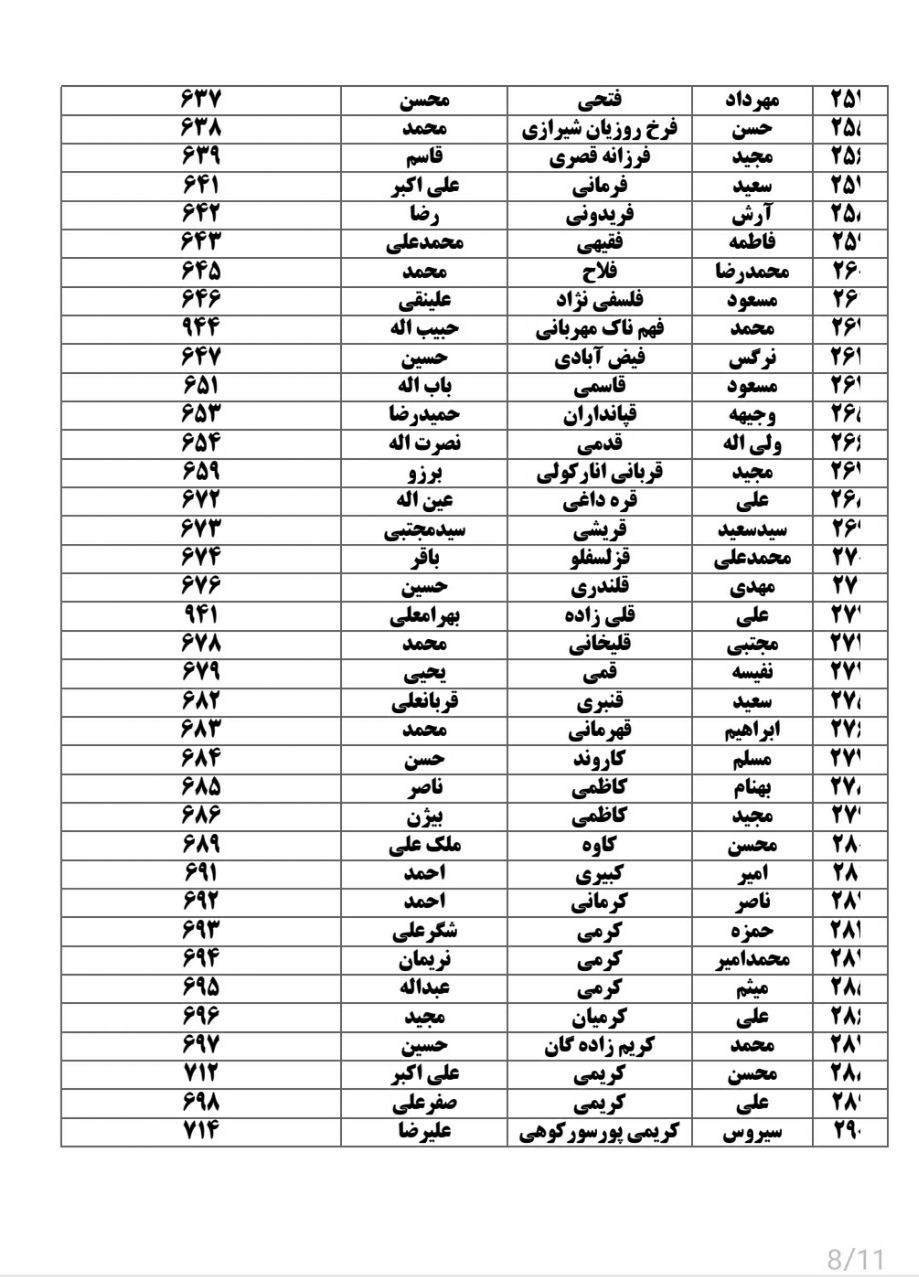 ۲۵۴ مهرداد فتحی محسن ۶۳۷
۲۵۵ حسن فرخ روزیان شیرازی محمد ۶۳۸
۲۵۶ مجید فرزانه قصری قاسم ۶۳۹
۲۵۷ سعید فرمانی علی اکبر ۶۴۱
۲۵۸ آرش فریدونی رضا ۶۴۲
۲۵۹ فاطمه فقیهی محمدعلی ۶۴۳
۲۶۰ محمدرضا فلاح محمد ۶۴۵
۲۶۱ مسعود فلسفی نژاد علینقی ۶۴۶
۲۶۲ محمد فهم ناک مهربانی حبیب اله ۹۴۴
۲۶۳ نرگس فیض آبادی حسین ۶۴۷
۲۶۴ مسعود قاسمی باب اله ۶۵۱
۲۶۵ وجیهه قپانداران حمیدرضا ۶۵۳
۲۶۶ ولی اله قدمی نصرت اله ۶۵۴
۲۶۷ مجید قربانی انارکولی برزو ۶۵۹
۲۶۸ علی قره داغی عین اله ۶۷۲
۲۶۹ سیدسعید قریشی سیدمجتبی ۶۷۳
۲۷۰ محمدعلی قزلسفلو باقر ۶۷۴
۲۷۱ مهدی قلندری حسین ۶۷۶
۲۷۲ علی قلی زاده بهرامعلی ۹۴۱
۲۷۳ مجتبی قلیخانی محمد ۶۷۸
۲۷۴ نفیسه قمی یحیی ۶۷۹
۲۷۵ سعید قنبری قربانعلی ۶۸۲
۲۷۶ ابراهیم قهرمانی محمد ۶۸۳
۲۷۷ مسلم کاروند حسن ۶۸۴
۲۷۸ بهنام کاظمی ناصر ۶۸۵
۲۷۹ مجید کاظمی بیژن ۶۸۶
۲۸۰ محسن کاوه ملک علی ۶۸۹
۲۸۱ امیر کبیری احمد ۶۹۱
۲۸۲ ناصر کرمانی احمد ۶۹۲
۲۸۳ حمزه کرمی شگرعلی ۶۹۳
۲۸۴ محمدامیر کرمی نریمان ۶۹۴
۲۸۵ میثم کرمی عبداله ۶۹۵
۲۸۶ علی کرمیان مجید ۶۹۶
۲۸۷ محمد کریم زاده گان حسین ۶۹۷
۲۸۸ محسن کریمی علی اکبر ۷۱۲
۲۸۹ علی کریمی صفرعلی ۶۹۸
۲۹۰ سیروس کریمی پورسورکوهی علیرضا ۷۱۴
8/11